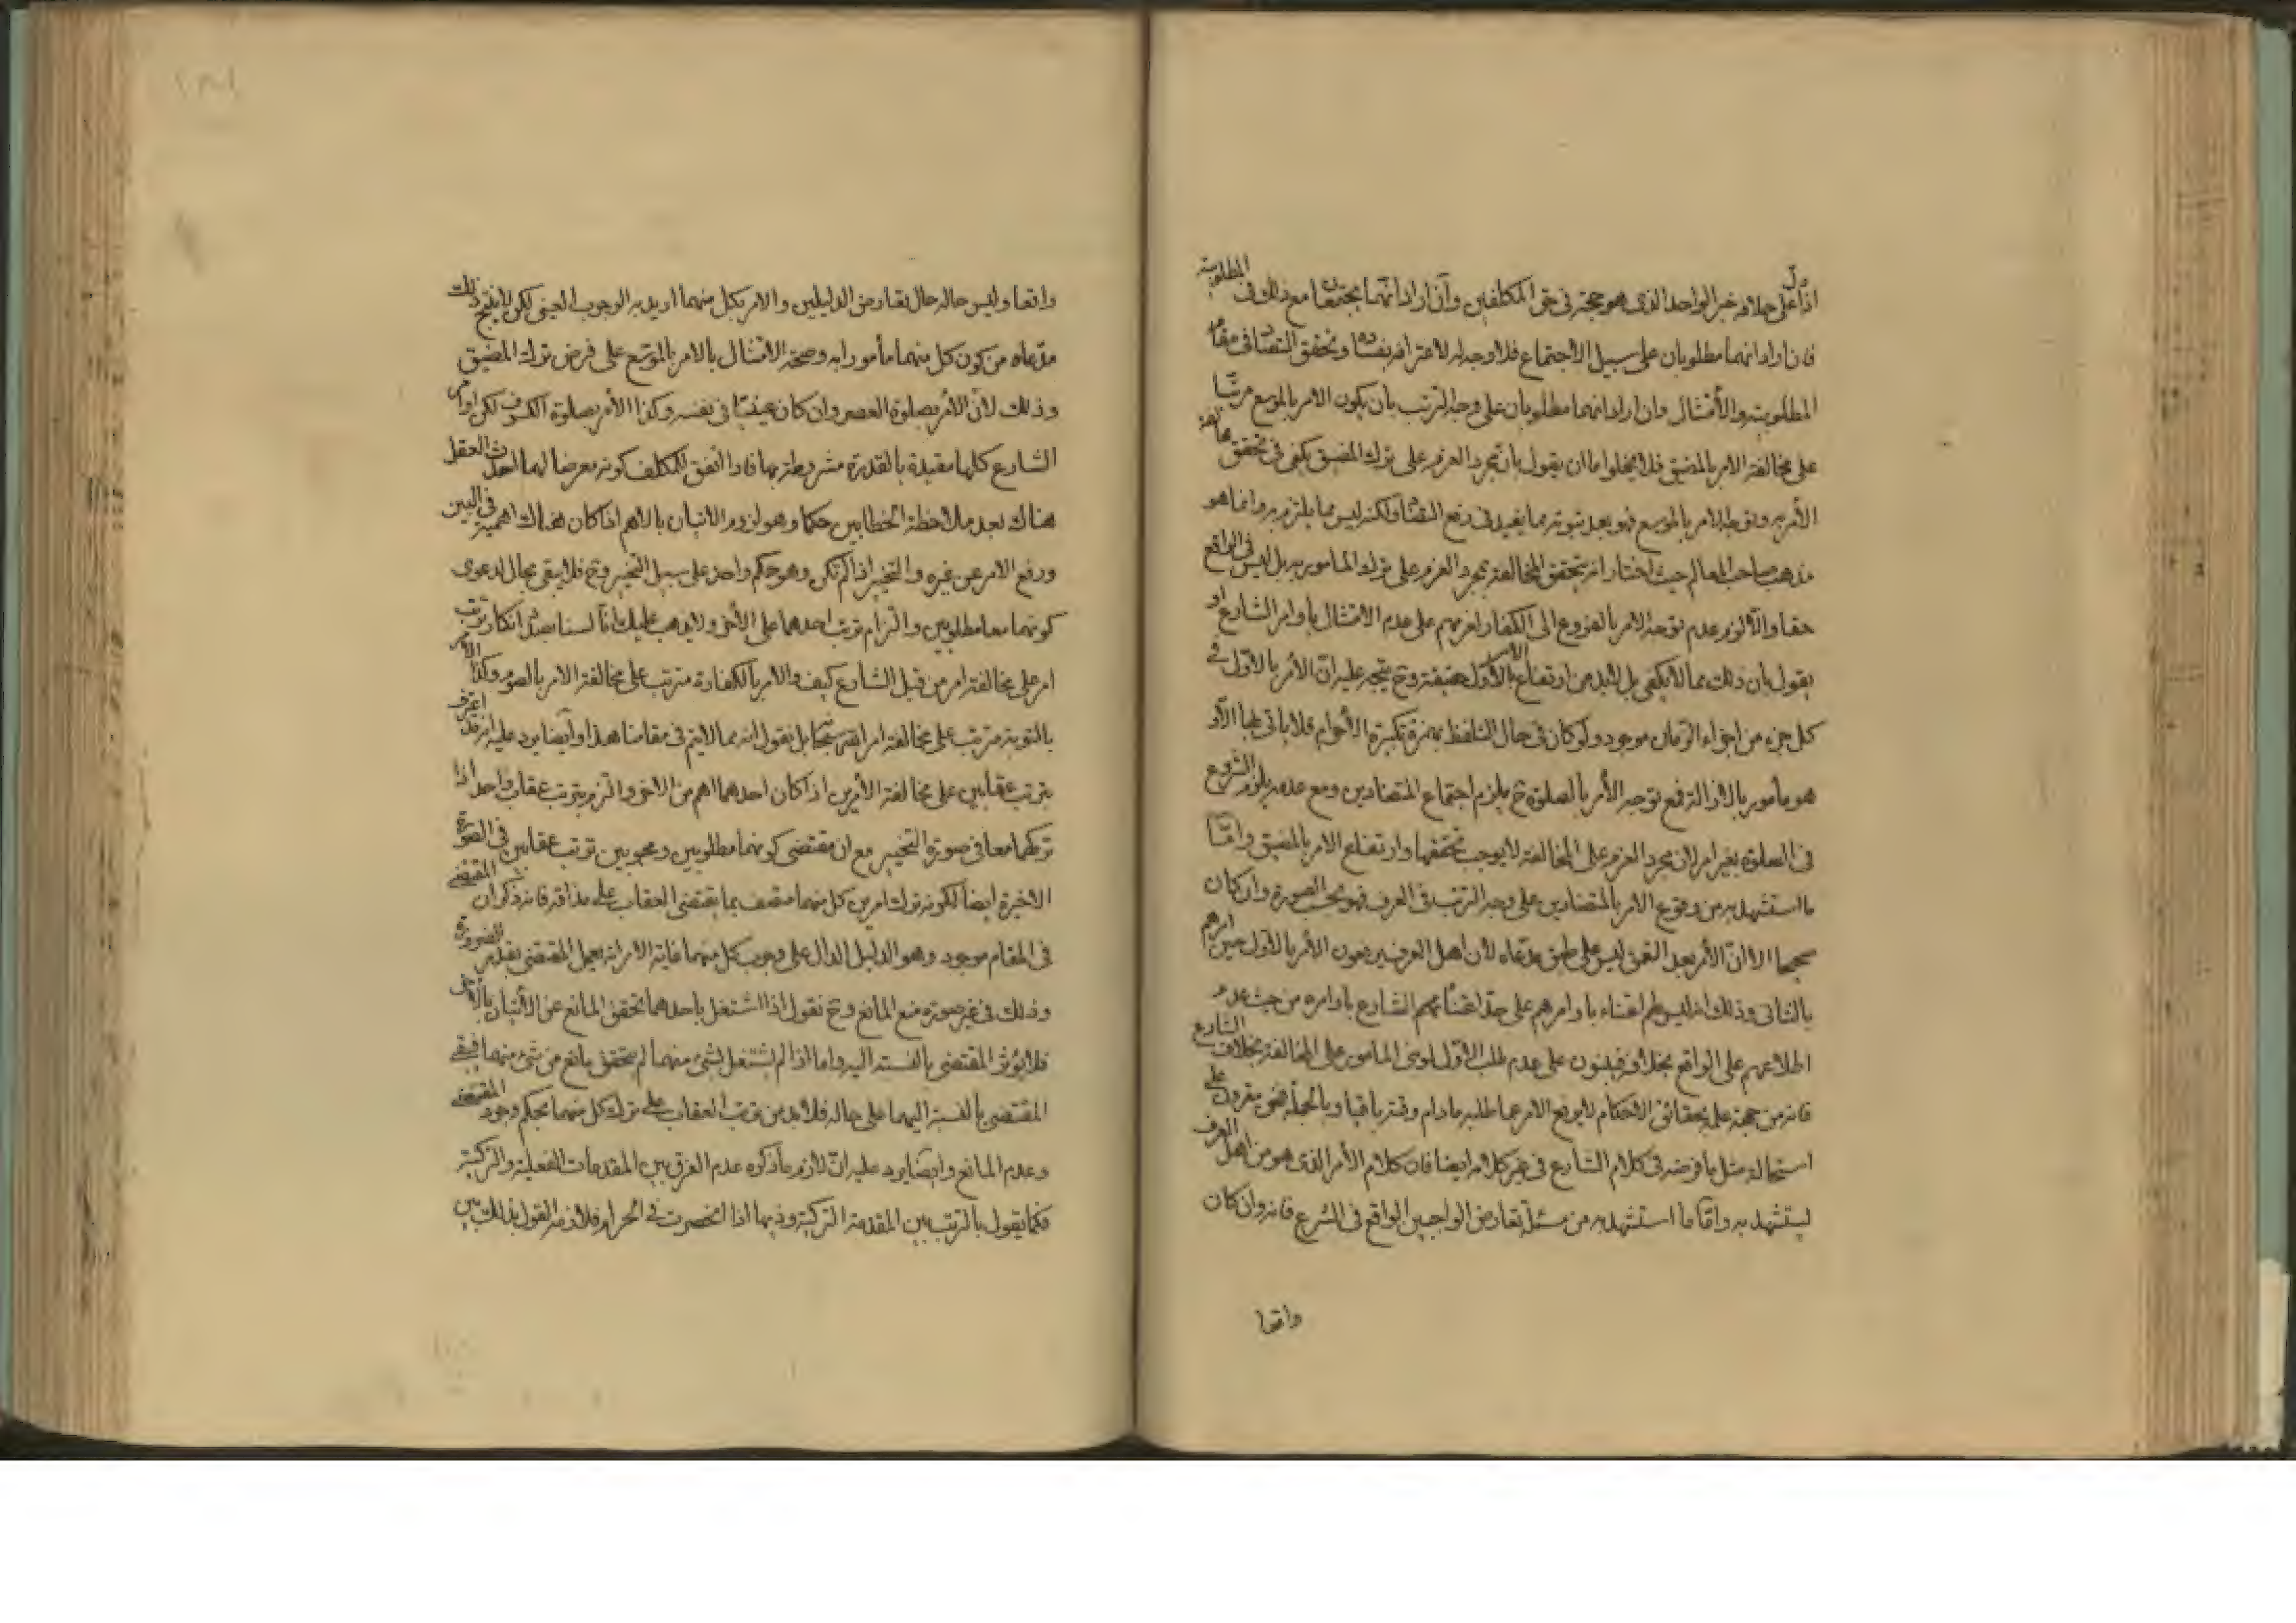 اذا دل على خلافه خبر الواحد الذى هو حجة فى حق المكلفين وان اراد انهما مجتمعان مع ذلك فى المطلوبية
فان اراد انهما مطلوبان على سبيل الاجتماع فلا وجه له لاعترافه بفساده وتحقق التضاد فى مقام
المطلوبية والأمتثال وان اراد انهما مطلوبان على وجه الترتب بان يكون الامر بالموسع مرتبا
على مخالفة الامر بالمضيق فلا يخلوا ما ان يقول بان مجرد العزم على ترك المضيق يكفى فى تحقق مخالفة
الأمر به وتوجه الامر بالموسع فهو بعد ثبوته مما يفيد فى دفع التضاد لكنه ليس مما يلتزم به وانما هو
مذهب صاحب المعالم حيث اختار انه يتحقق المخالفة بمجرد العزم على ترك المأمور به بل ليس فى الواقع
حقا والا لزم عدم توجه الامر بالفروع الى الكفار لعزمهم على عدم الامتثال بأوامر الشارع او
يقول بان ذلك مما لا يكفى بل لابد من ارتفاع الامر بالأول حقيقة وح يتجه عليه ان الأمر بالاول فى
كل جزء من اجزاء الزمان موجود ولو كان فى حال التلفظ بهمزة تكبيرة الأحرام فلا ياتى بها الا و
هو مأمور بالازالة فمع توجه الأمر بالصلوة ح يلزم اجتماع المتضادين ومع عدمه يلزم الشروع
فى الصلوة بغير امر لان مجرد العزم على المخالفة لا يوجب تحققها وارتفاع الامر بالمضيق واما
ما استشهد به من وقوع الامر بالمتضادين على وجه الترتب فى العرف فهو بحسب الصورة وان كان
صحيحا الا ان الأمر بعد التعمق ليس على طبق مدعاه لأن اهل العرف يرفعون الأمر بالاول حين امرهم
بالثانى وذلك انه ليس لهم اعتناء باوامرهم على حد اعتناء الشارع باوامره من حيث عدم
اطلاعهم على الواقع بخلافه فيبنون على عدم طلب الاول لو بنى المامور على المخالفة بخلاف الشارع
فانه من جهة علمه بحقائق الاحكام لا يرفع الامر عما طلبه مادام وقته باقيا وبالجملة فهو مقرون على
استحالة مثل ما فرضه فى كلام الشارع فى غير كلامه ايضا فان كلام الأمر الذى هو من اهل العرف
يستشهد به واما ما استشهد به من مسئلة تعارض الواجبين الواقع فى الشرع فانه وان كان
واقعا
واقعا وليس حاله حال تعارض الدليلين والامر بكل منهما اريد به الوجوب العينى لكن لا ينتج ذلك
مدعاه من كون كل منهما مأمورا به وصحة الامتثال بالامر بالموسع على فرض ترك المضيق
وذلك لأن الأمر بصلوة العصر وان كان عينيا فى نفسه وكذا الأمر بصلوة الكسوف لكن اوامر
الشارع كلها مقيدة بالقدرة مشروطة بها فاذا اتفق للمكلف كونه معرضا لهما احدث العقل
هناك بعد ملاحظة الخطابين حكما وهو لزوم الاتيان بالاهم اذا كان هناك اهمية فى البين
ورفع الامر عن غيره والتخيير اذا لم تكن وهو حكم واحد على سبيل التخيير وح فلا يبقى مجال لدعوى
كونهما معا مطلوبين والتزام ترتب احدهما على الأخر ولا يذهب عليك انا لسنا بصدد انكار ترتب
امر على مخالفة امر من قبل الشارع كيف والامر بالكفارة مترتب على مخالفة الامر بالصوم وكذا الامر
بالتوبة مترتب على مخالفة امر الله سبحانه بل نقول انه مما لا يتم فى مقامنا هذا وايضا يرد عليه انه قد اعترف
بترتب عقابين على مخالفة الأمرين اذا كان احدهما اهم من الاخر والتزم بترتب عقاب واحد اذا
تركهما معا فى صورة التخيير مع ان مقتضى كونهما مطلوبين ومحبوبين ترتب عقابين فى الصورة
الاخيرة ايضا لكونه ترك امرين كل منهما متصف بما يقتضى العقاب على مذاقه فانه ذكر ان المقتضى
فى المقام موجود وهو الدليل الدال على وجوب كل منهما غاية الامر انه يعمل المقتضى بقدر الضرورة
وذلك فى غير صورة منع المانع وح نقول اذا اشتغل باحدهما تحقق المانع عن الأتيان بالاخر
فلا يؤثر المقتضى بالنسبة اليه واما اذا لم يشتغل بشئ منهما لم يتحقق مانع من شئ منهما فيبقى
المقتضى بالنسبة اليهما على حاله فلابد من ترتب العقاب على ترك كل منهما بحكم وجود المقتضى
وعدم المانع وايضا يرد عليه ان لازم ما ذكره عدم الفرق بين المقدمات الفعلية والتركية
فكما يقول بالترتب بين المقدمة التركية وذيها اذا انحصرت فى الحرام فلازمه القول بذلك بين